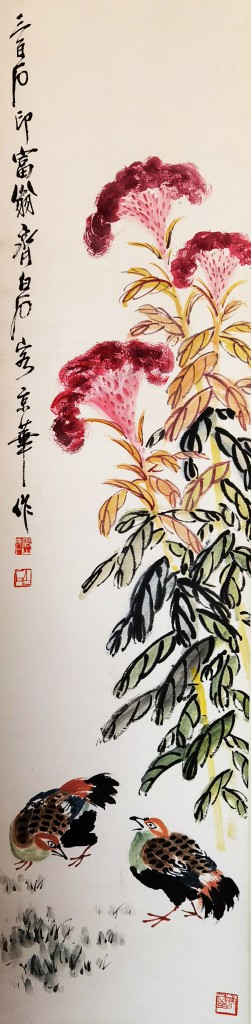 三百石印富翁齊白石客京華作